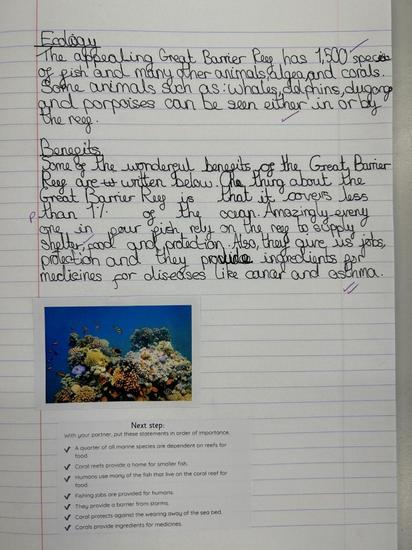 Ecology
The appealing Great Barrier Reef has 1,500 species
of fish and many other animals, algea, and corals.
Some animals such as: whales, dolphins, dugongs
and porpoises can be seen either in or by
the reef.
Benefits
Some of the wonderful benefits of the Great Barrier
Reef are written below. One thing about the
Great Barrier Reef is that it covers less
than 1% of the ocean. Amazingly every
one in four fish, rely on the reef to supply
shelter, food and protection. Also, they give us jobs,
protection and they provide ingredients for
medicines for diseases like cancer and asthma.
Next step:
With your partner, put these statements in order of importance.
✓ A quarter of all marine species are dependent on reefs for
food.
✓ Coral reefs provide a home for smaller fish.
✓ Humans use many of the fish that live on the coral reef for
food.
✓ Fishing jobs are provided for humans.
✓ They provide a barrier from storms.
✓ Coral protects against the wearing away of the sea bed.
✓ Corals provide ingredients for medicines.